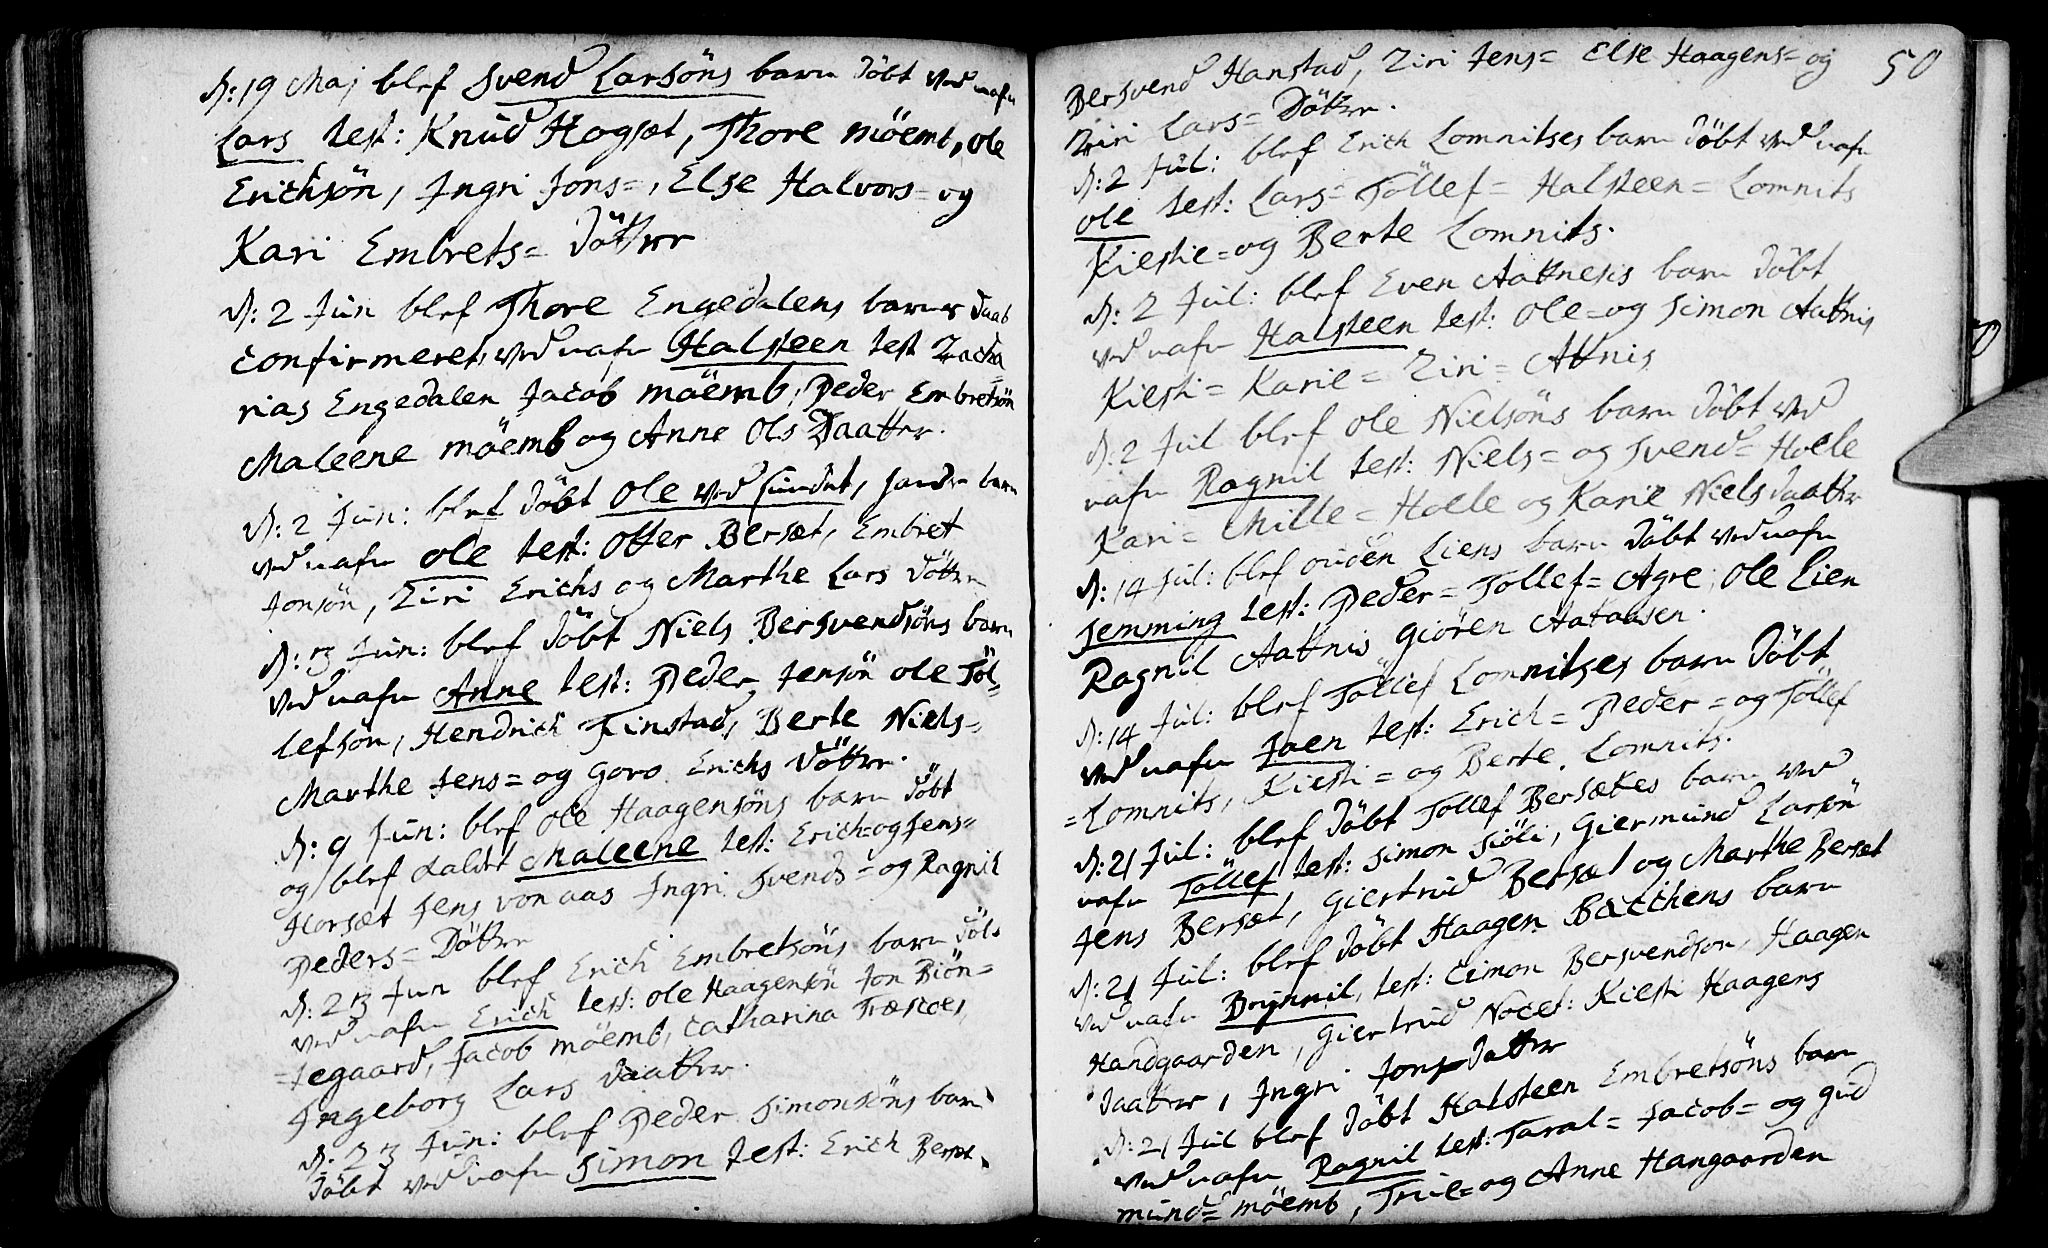 D: 19 Maj blef Svend Larsöns barn döbt ved nafn
Lars test: Knud Hogsæt, Thore möemb, ole
Erichsön, Ingri Jons=, Else Halvors= og
Kari Embrets= döttrer
D: 2 Jun blef Thore Engedalens barns daab
confirmeret, ved nafn Halsteen test Zacha
rias Engedalen Jacob möemb, Peder Embretsön
Maleene möemb og Anne Ols Daatter.
D: 2 Jun: blef döbt Ole ved sundet, barn
ved nafn ole test: Otter Bersæt, Embret
Jonsön, Ziri Erichs og Marthe Lars döttre
D: 3 Jun: blef döbt Niels Bersvendsöns barn
ved nafn Anne test: Peder Jensön ole Töl=
lefsön, Hendrich Finstad, Berte Niels=
Marthe Jens= og Goro Erichs döttrer.
D: 9 Jun: blef Ole Haagensöns barn döbt
og blef kaldet Maleene test: Erich= og Jens=
Horsæt Jens von aas Ingri Svends= og Ragnil
Peders= Döttre
D: 23 Jun blef Erich Embretsöns barn döbt
ved nafn Erich test: ole Haagensön Jon Biön=
=Jegaard, Jacob möemb, Catharina Træscoes,
Ingeborg Lars daatter.
D: 23 Jun: blef Peder Simonsöns barn
döbt ved nafn Simon test: Erich Bersæt
50
Bersvend Hanstad, Ziri Jens= Else Haagens= og
Ziri Lars= Döttrer.
D: 2 Jul: blef Erich Lomnitses barn döbt ved nafn
ole test: Lars= Töllef= Halsteen= Lomnits
Kiestie= og Berte Lomnits.
D: 2 Jul: blef Even Aattnesis barn döbt
ved nafn Halsteen test: Ole= og Simon Aattnis
Kiesti= Karie= Ziri= Attnis
D: 2 Jul blef ole Nielsöns barn döbt ved
nafn Ragnil test: Niels= og Svend= Holle
Kari= Mille= Holle og Karie Niels daatter
D: 14 Jul: blef ouden Liens barn döbt ved nafn
Jemming test: Peder= Tollef= Agre, Ole Lien
Ragnil Aattnis Giören Aataasen.
D: 14 Jul: blef Töllef Lomnitses barn döbt
ved nafn Joen test: Erich= Peder= og Töllef
=Lomnits, Kiesti= og Berte. Lomnits.
D: 21 Jul: blef döbt Tollef Bersætes barn ved
nafn Töllef test: Simon Siöli, Giermund Larsön
Jens Bersæt, Giertrud Bersæt og Marthe Bersæt
D: 21 Jul: blef döbt Haagen Bacchens barn
ved nafn Brynnil, test: Cimon Bersvendson, Haagen
Handgaarden, Giertrud Nocet: Kiesti Haagens
daatter, Ingri Jons datter
D: 21 Jul blef döbt Halsteen Embretsöns barn
ved nafn Ragnil test: Taral= Jacob= og Gud
mund= möemb, Trüe= og Anne Hangaarden